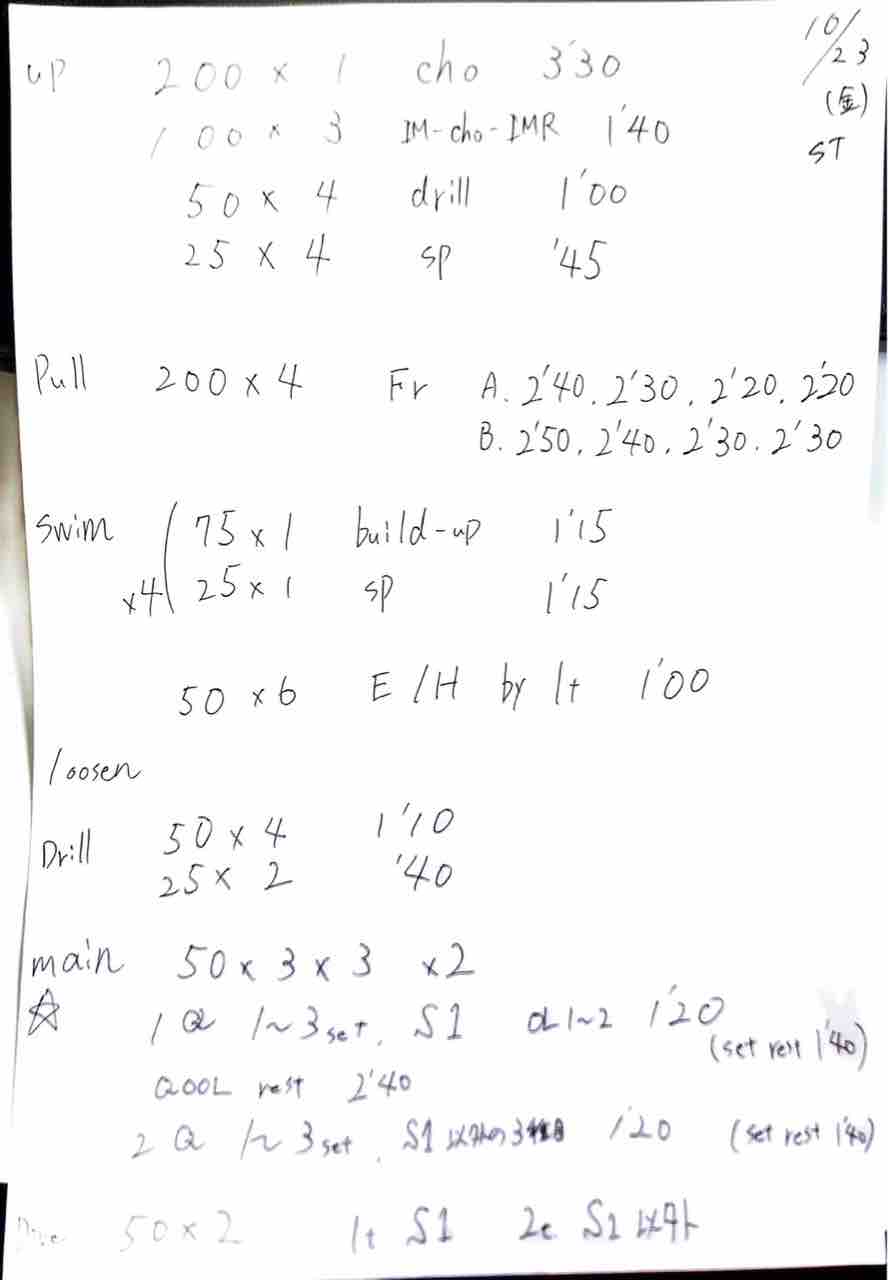 10/23
(金)
ST
up 200 × 1 cho 3'30
100 × 3 IM-cho-IMR 1'40
50 × 4 drill 1'00
25 × 4 sp '45
Pull 200 × 4 Fr A. 2'40. 2'30. 2'20. 2'20
B. 2'50. 2'40. 2'30. 2'30
Swim 75 × 1 build-up 1'15
×4 25 × 1 sp 1'15
50 × 6 E/H by 1t 1'00
loosen
Drill 50 × 4 1'10
25 × 2 '40
main 50 × 3 × 3 ×2
☆ 1 1~3 set. S1 1~2 1'20
(set rest 1'40)
rest 2'40
2 1~3 set. S1以外の 1'20 (set rest 1'40)
50 × 2 1t S1 S1以外